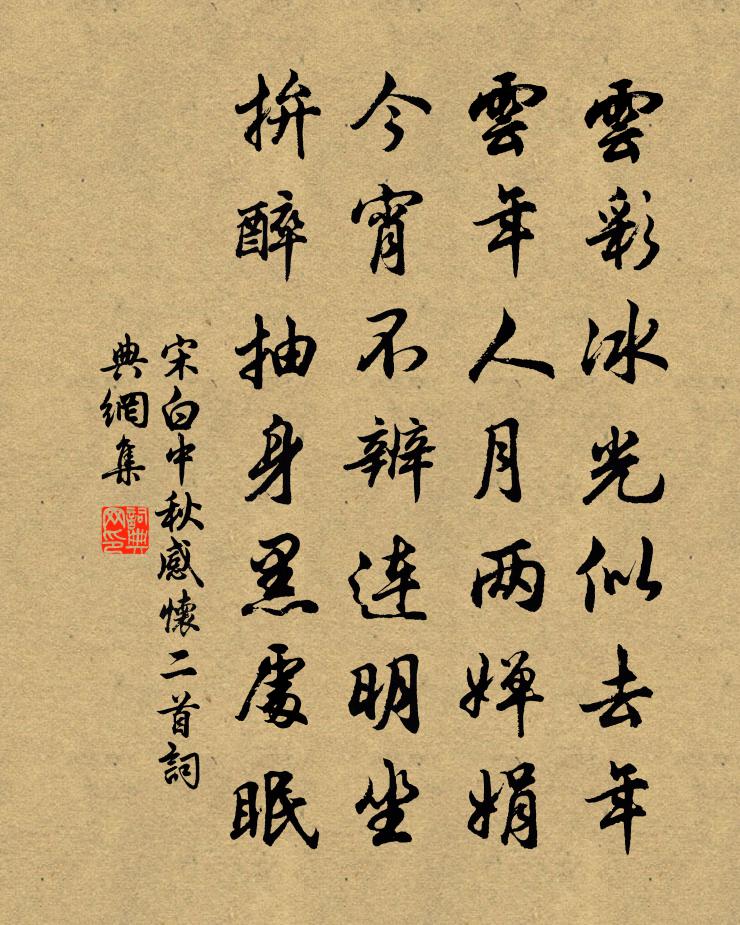 雲彩冰光似去年
雲年人月两婵娟
今宵不辨连明坐
拚醉抽身黑處眠
宋白中秋感懷二首詞
典網集
詞典
网印